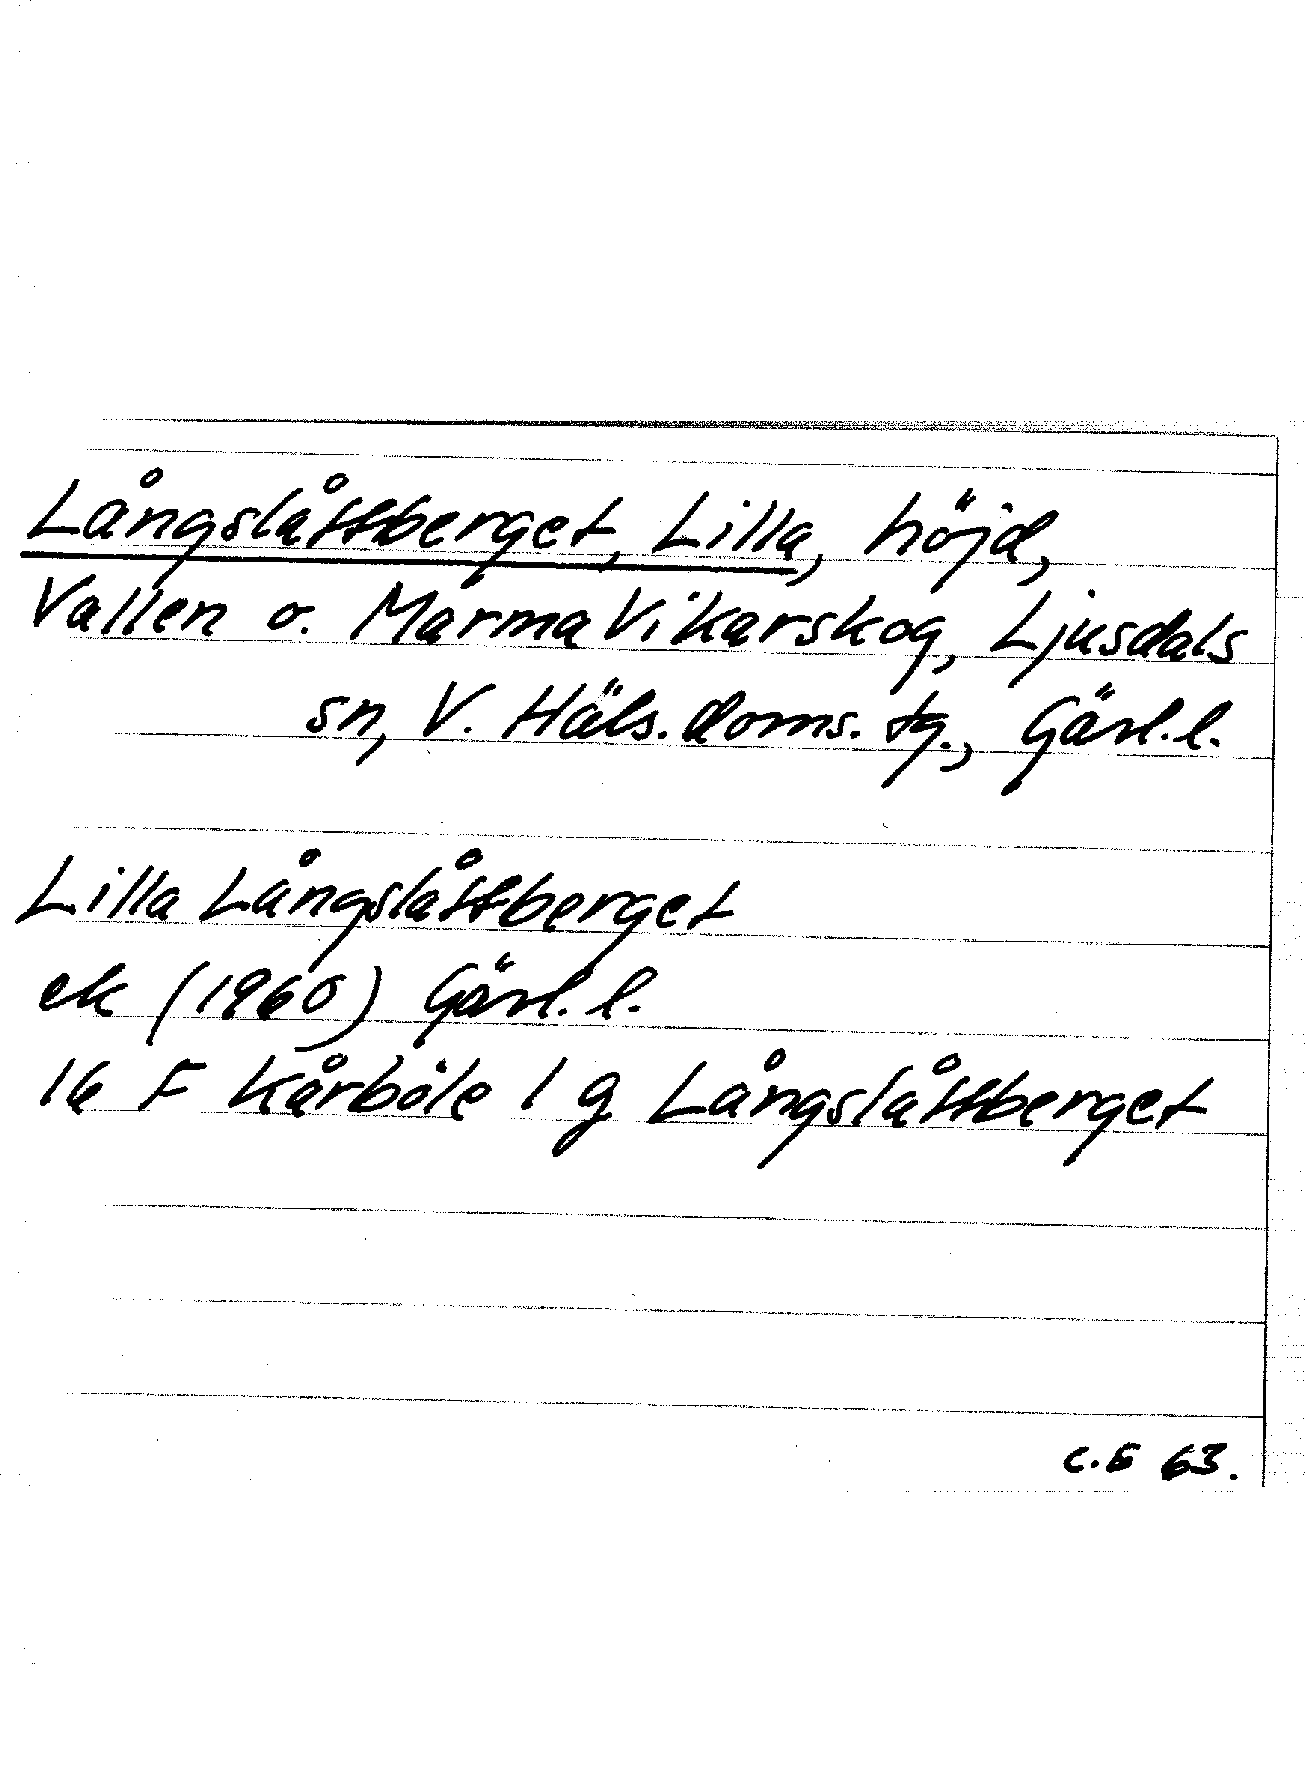 Långslåttberget, Lilla, höjd,
Vallen o. Marma Vikarskog, Ljusdals
sn, V. Häls. doms. tg., Gävl. l.
Lilla Långslåttberget
ek (1960) Gävl. l.
16 F Kårböle 1 g Långslåttberget
C.E 63.